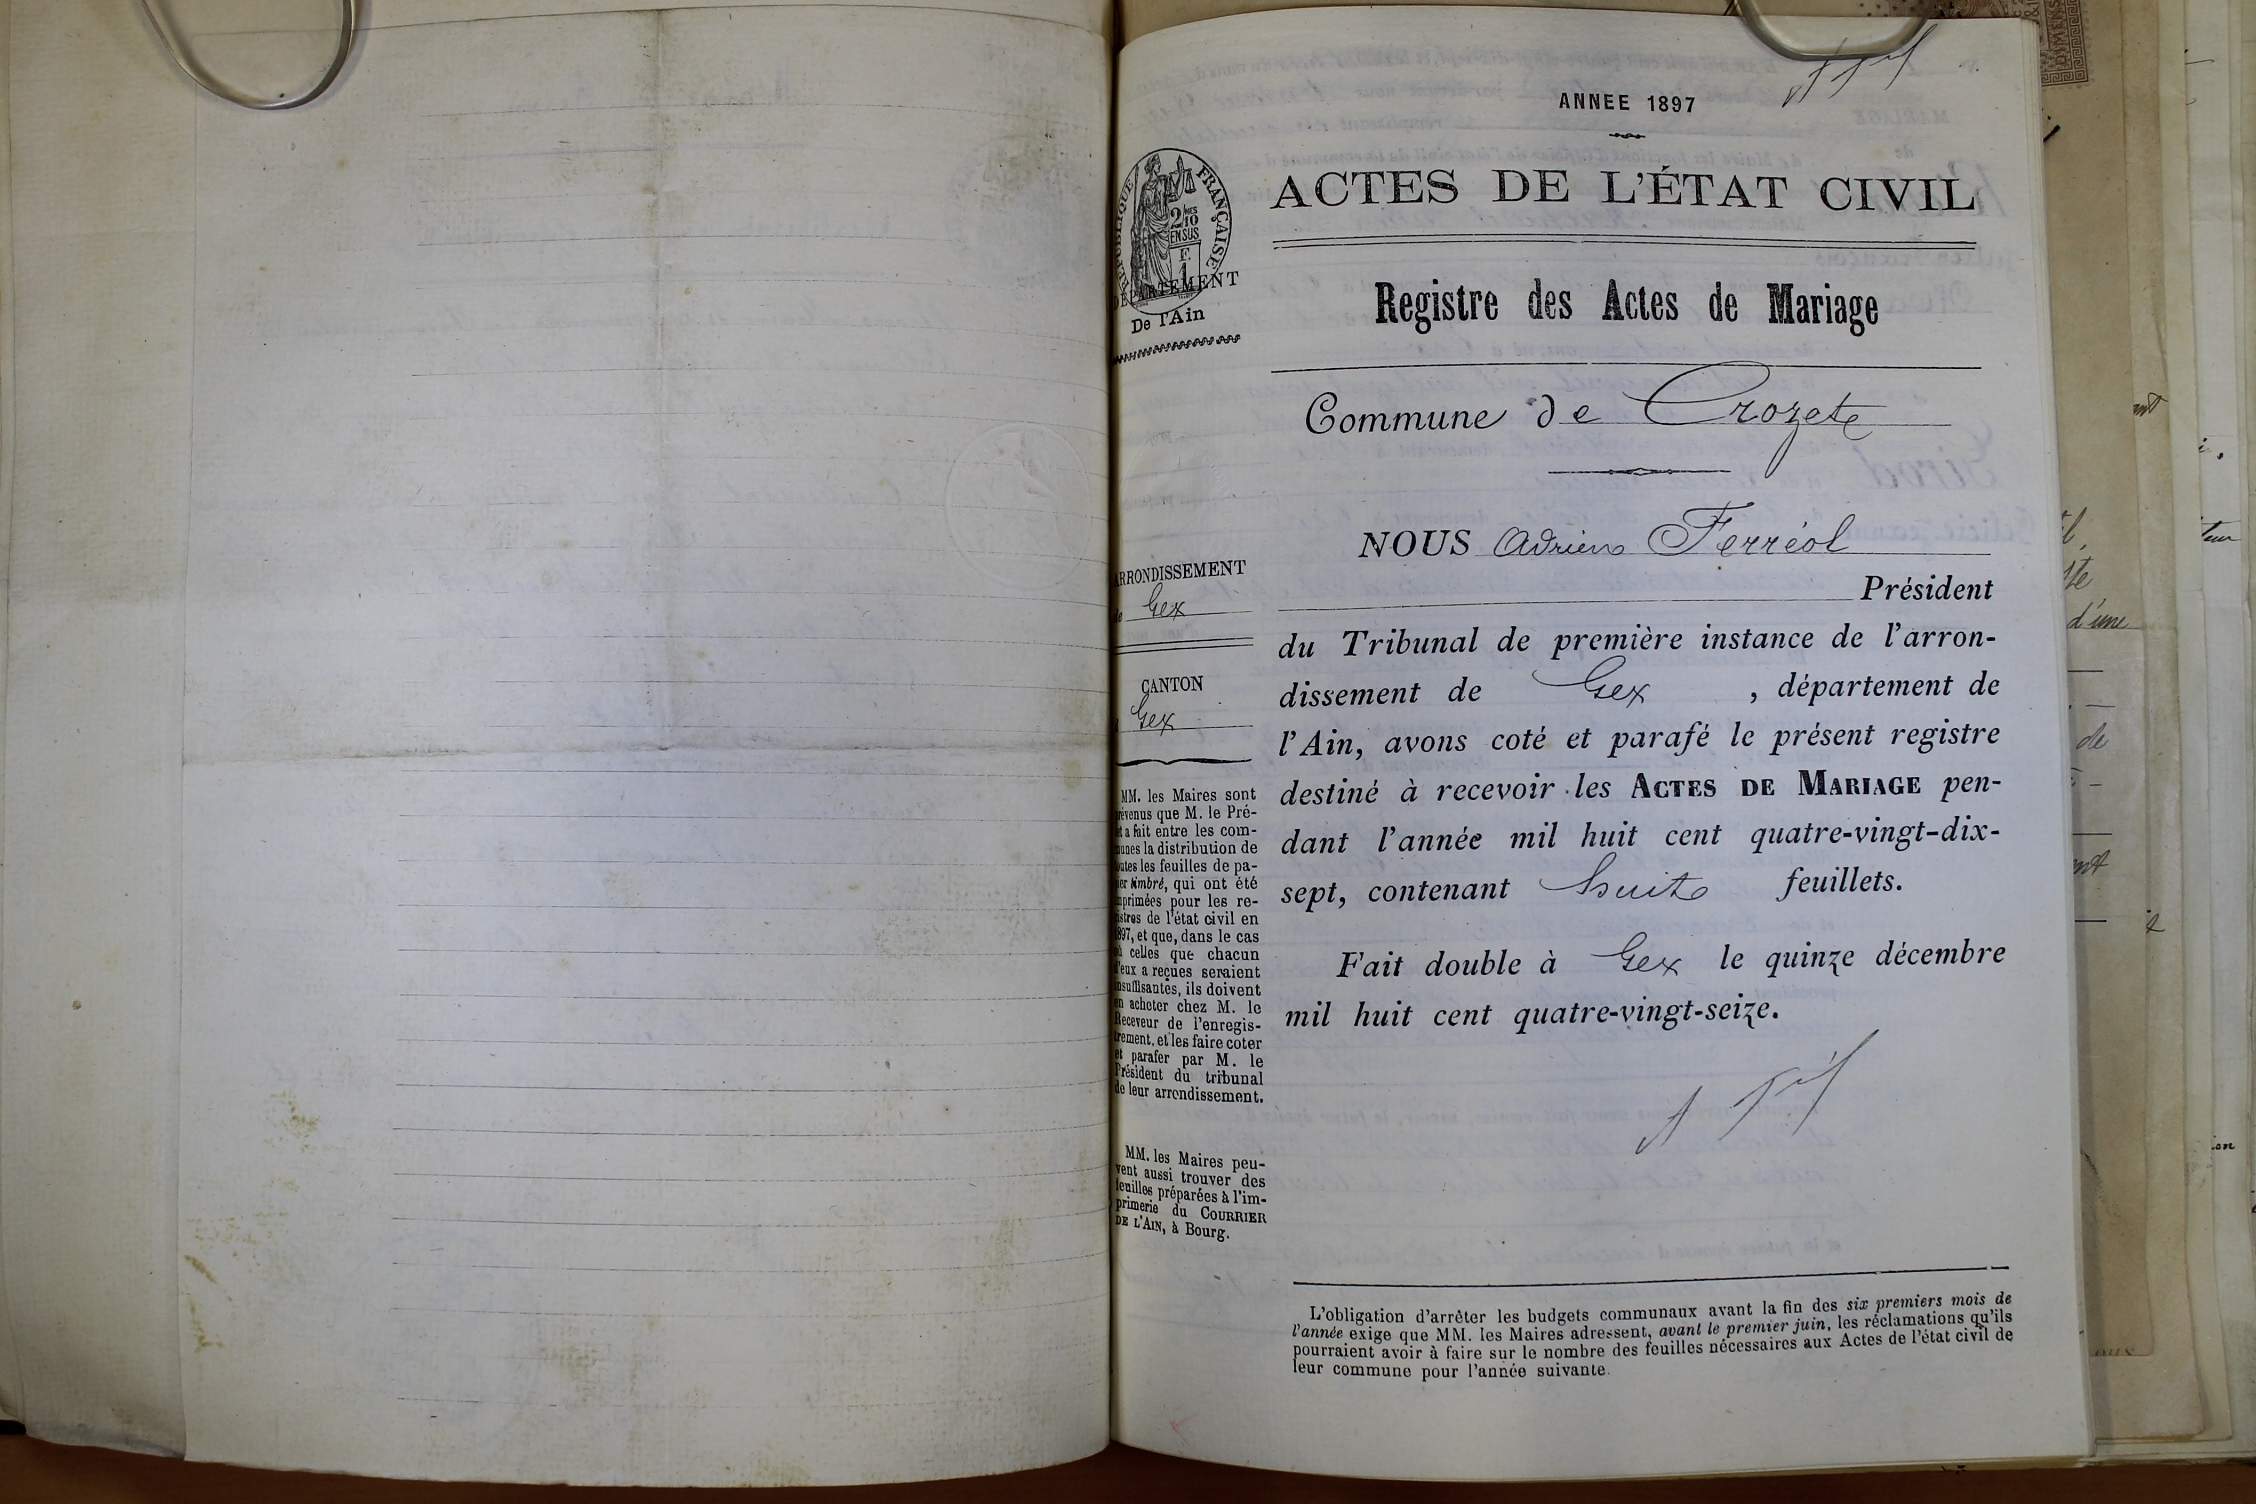 ANNEE 1897
ACTES DE L'ÉTAT CIVIL
Registre des Actes de Mariage
Commune de Crozet
RÉPUBLIQUE FRANÇAISE
2/10 EN SUS
F. 1
DÉPARTEMENT
De l'Ain
ARRONDISSEMENT
de Gex
CANTON
Gex
MM. les Maires sont
prévenus que M. le Pré-
fet a fait entre les com-
munes la distribution de
toutes les feuilles de pa-
pier timbré, qui ont été
imprimées pour les re-
gistres de l'état civil en
1897, et que, dans le cas
où celles que chacun
d'eux a reçues seraient
insuffisantes, ils doivent
en acheter chez M. le
Receveur de l'enregis-
trement, et les faire coter
et parafer par M. le
Président du tribunal
de leur arrondissement.
MM. les Maires peu-
vent aussi trouver des
feuilles préparées à l'im-
primerie du COURRIER
DE L'AIN, à Bourg.
NOUS Adrien Ferréol
Président
du Tribunal de première instance de l'arron-
dissement de Gex, département de
l'Ain, avons coté et parafé le présent registre
destiné à recevoir les ACTES DE MARIAGE pen-
dant l'année mil huit cent quatre-vingt-dix-
sept, contenant huit feuillets.
Fait double à Gex le quinze décembre
mil huit cent quatre-vingt-seize.
L'obligation d'arrêter les budgets communaux avant la fin des six premiers mois de
l'année exige que MM. les Maires adressent, avant le premier juin, les réclamations qu'ils
pourraient avoir à faire sur le nombre des feuilles nécessaires aux Actes de l'état civil de
leur commune pour l'année suivante.
d'une
de